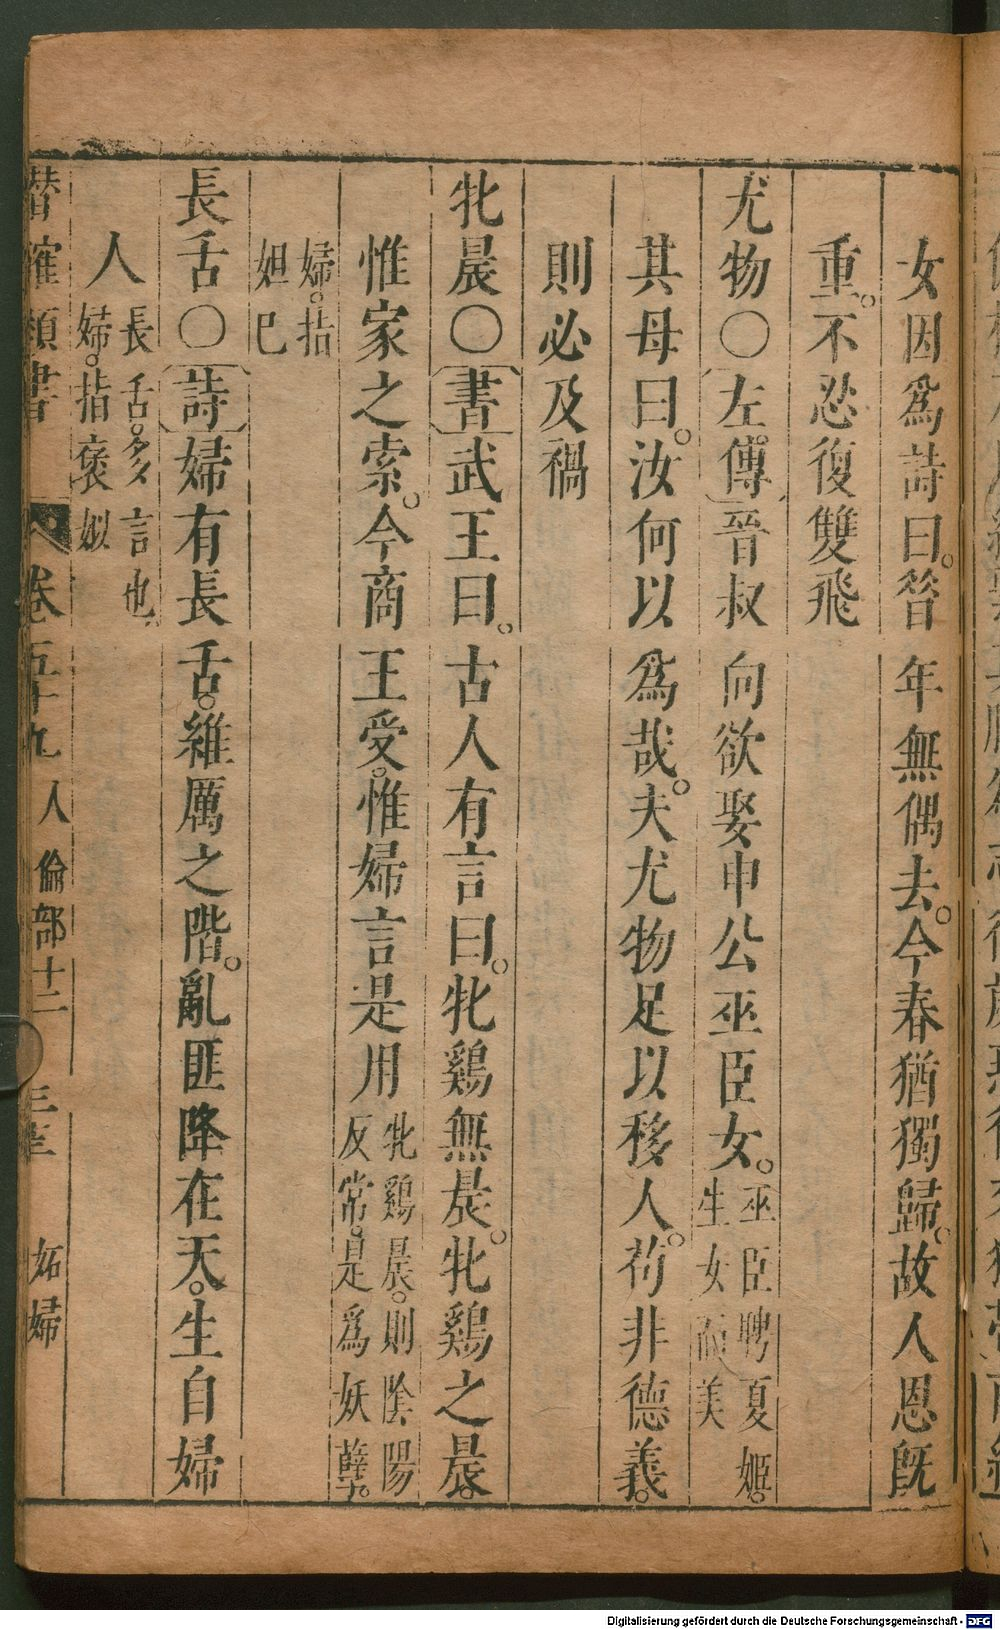 女因爲詩曰。昝年無偶去。今春猶獨歸。故人恩旣
重。不忍復雙飛
尤物〇左傳晉叔向欲娶申公巫臣女。巫臣聘夏姬。生女而美
其母曰。汝何以爲哉。夫尤物足以移人。苟非德義。
則必及禍
牝晨〇書武王曰。古人有言曰。牝鷄無晨。牝鷄之晨。
惟家之索。今商王受。惟婦言是用牝鷄晨。則陰陽反常。是爲妖孽。
婦。指妲巳
長舌〇詩婦有長舌。維厲之階。亂匪降在天。生自婦
人長舌。多言也婦。指褒姒
潛確類書 卷五十九 人倫部十二 妬婦
Digitalisierung gefördert durch die Deutsche Forschungsgemeinschaft - DFG